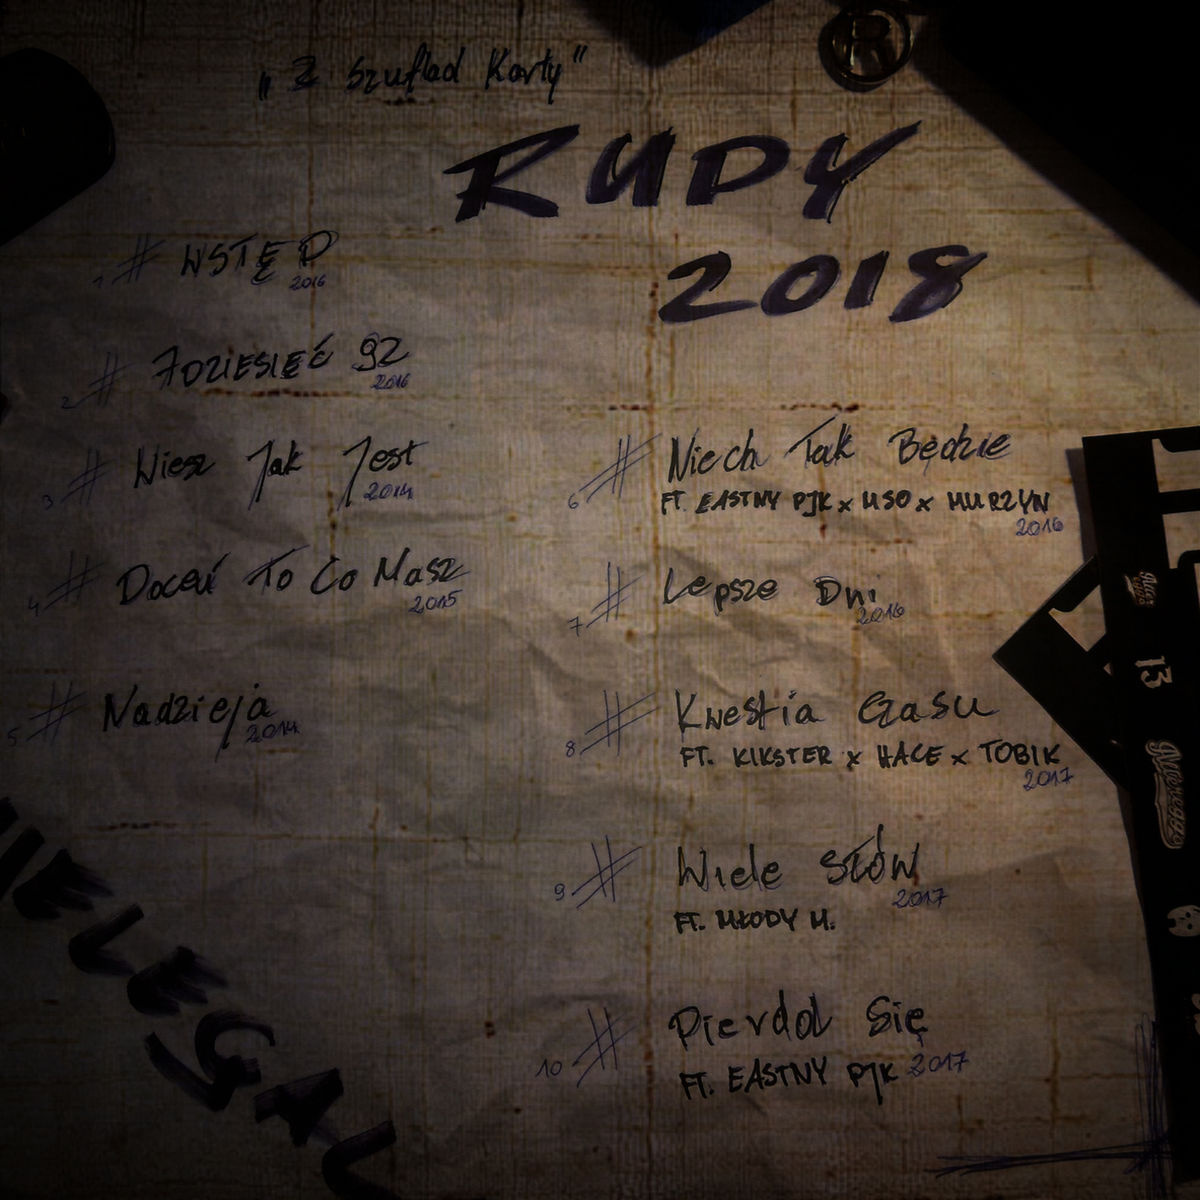 „Z Szuflad Karty"
RUDY
2018
1 # WSTĘP
2016
2 # 7DZIESIĘĆ 92
2016
3 # Wiesz Jak Jest
2014
4 # Doceń To Co Masz
2015
5 # Nadzieja
2014
6 # Niech Tak Będzie
FT. EASTNY PJK x USO x MURZYN
2016
7 # Lepsze Dni
2016
8 # Kwestia Czasu
FT. KIKSTER x HACE x TOBIK
2017
9 # Wiele Słów
2017
FT. MŁODY M.
10 # Pierdol Się
FT. EASTNY PJK 2017
NIELEGAL
®
13